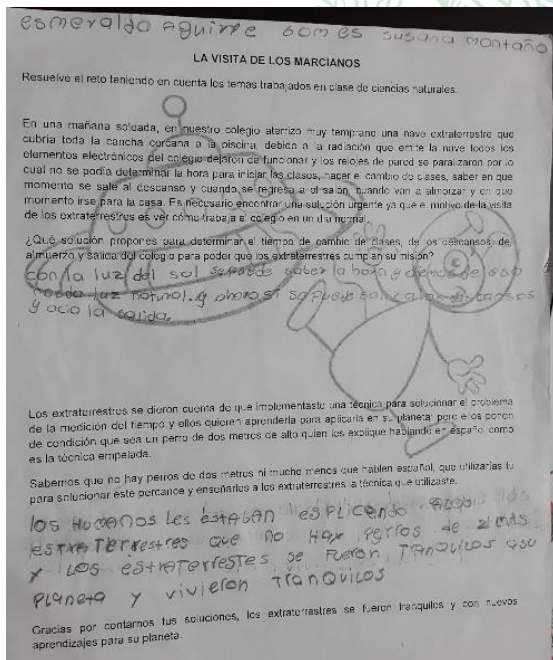 esmeralda Aguirre Gomes susana montaño
LA VISITA DE LOS MARCIANOS
Resuelve el reto teniendo en cuenta los temas trabajados en clase de ciencias naturales.
En una mañana soleada, en nuestro colegio aterrizo muy temprano una nave extraterrestre que
cubría toda la cancha cercana a la piscina, debido a la radiación que emite la nave todos los
elementos electrónicos del colegio dejaron de funcionar y los relojes de pared se paralizaron por lo
cual no se podía determinar la hora para iniciar las clases, hacer el cambio de clases, saber en que
momento se sale al descanso y cuando se regresa al salón, cuando van a almorzar y en que
momento irse para la casa. Es necesario encontrar una solución urgente ya que el motivo de la visita
de los extraterrestres es ver cómo trabaja el colegio en un dia normal.
¿Qué solución propones para determinar el tiempo de cambio de clases, de los descansos, del
almuerzo y salida del colegio para poder que los extraterrestres cumplan su misión?
con la luz del sol se puede saber la hora y demos de eso
luz natural. y ahora si se puede
y ocia la salida.
Los extraterrestres se dieron cuenta de que implementaste una técnica para solucionar el problema
de la medición del tiempo y ellos quieren aprenderla para aplicarla en su planeta; pero ellos ponen
de condición que sea un perro de dos metros de alto quien les explique hablando en español como
es la técnica empelada.
Sabemos que no hay perros de dos metros ni mucho menos que hablen español, que utilizarías tu
para solucionar este percance y enseñarles a los extraterrestres la técnica que utilizaste.
los HUMANOS Les estaban esplicando los
estraterrestres que no Hay perros de 2
y Los estraterrestes se fueron TRANQUILOS asu
PLaneta y vivieron TranQuiLos
Gracias por contarnos tus soluciones, los extraterrestres se fueron tranquilos y con nuevos
aprendizajes para su planeta.